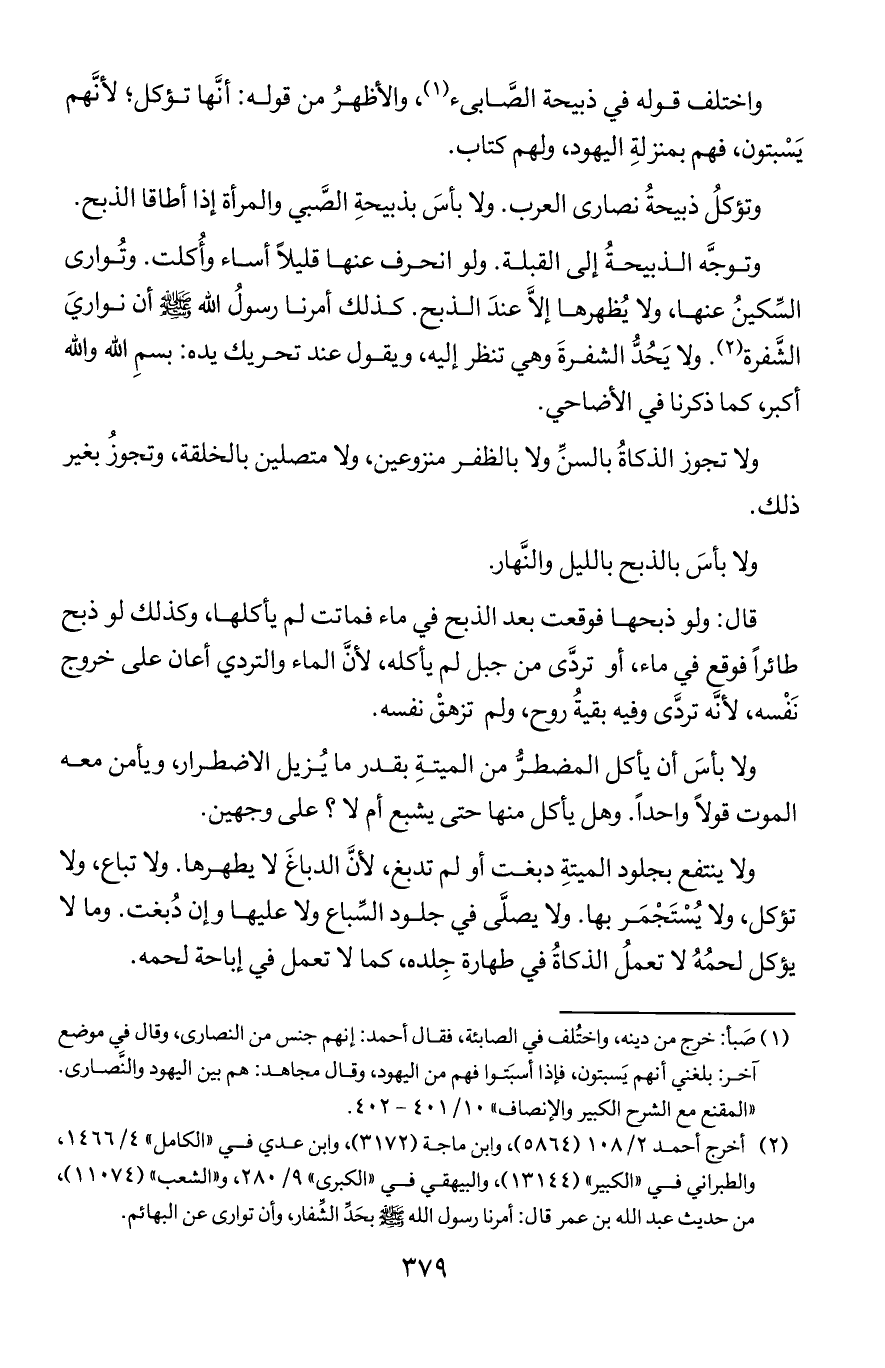 واختلف قوله في ذبيحة الصَّابىء(١)، والأظهرُ من قوله: أنَّها تؤكل؛ لأنَّهم
يَسْبتون، فهم بمنزلةِ اليهود، ولهم كتاب.
وتؤكلُ ذبيحةُ نصارى العرب. ولا بأسَ بذبيحةِ الصَّبي والمرأة إذا أطاقا الذبح.
وتوجَّه الذبيحةُ إلى القبلة. ولو انحرف عنها قليلاً أساء وأُكلت. وتُوارى
السِّكينُ عنها، ولا يُظهرها إلاَّ عندَ الذبح. كذلك أمرنا رسولُ الله ﷺ أن نواريَ
الشَّفرة(٢). ولا يَحُدُّ الشفرةَ وهي تنظر إليه، ويقول عند تحريك يده: بسمِ الله والله
أكبر، كما ذكرنا في الأضاحي.
ولا تجوز الذكاةُ بالسنِّ ولا بالظفر منزوعين، ولا متصلين بالخلقة، وتجوزُ بغير
ذلك.
ولا بأسَ بالذبح بالليل والنَّهار.
قال: ولو ذبحها فوقعت بعد الذبح في ماء فماتت لم يأكلها، وكذلك لو ذبح
طائراً فوقع في ماء، أو تردَّى من جبل لم يأكله، لأنَّ الماء والتردي أعان على خروج
نَفْسه، لأنَّه تردَّى وفيه بقيةُ روح، ولم تزهقْ نفسه.
ولا بأسَ أن يأكل المضطرُّ من الميتةِ بقدر ما يُزيل الاضطرار، ويأمن معه
الموت قولاً واحداً. وهل يأكل منها حتى يشبع أم لا ؟ على وجهين.
ولا ينتفع بجلود الميتةِ دبغت أو لم تدبغ، لأنَّ الدباغَ لا يطهرها. ولا تباع، ولا
تؤكل، ولا يُسْتَجْمَر بها. ولا يصلَّى في جلود السِّباع ولا عليها وإن دُبغت. وما لا
يؤكل لحمُهُ لا تعملُ الذكاةُ في طهارة جِلده، كما لا تعمل في إباحة لحمه.
(١) صَبأ: خرج من دينه، واختُلف في الصابئة، فقال أحمد: إنهم جنس من النصارى، وقال في موضع
آخر: بلغني أنهم يَسبتون، فإذا أسبَتوا فهم من اليهود، وقال مجاهد: هم بين اليهود والنَّصارى.
«المقنع مع الشرح الكبير والإنصاف» ١٠/ ٤٠١ - ٤٠٢.
(٢) أخرج أحمد ٢/ ١٠٨ (٥٨٦٤)، وابن ماجة (٣١٧٢)، وابن عدي في «الكامل» ٤/ ١٤٦٦،
والطبراني في «الكبير» (١٣١٤٤)، والبيهقي في «الكبرى» ٩/ ٢٨٠، و«الشعب» (١١٠٧٤)،
من حديث عبد الله بن عمر قال: أمرنا رسول الله ﷺ بحَدِّ الشِّفار، وأن توارى عن البهائم.
٣٧٩